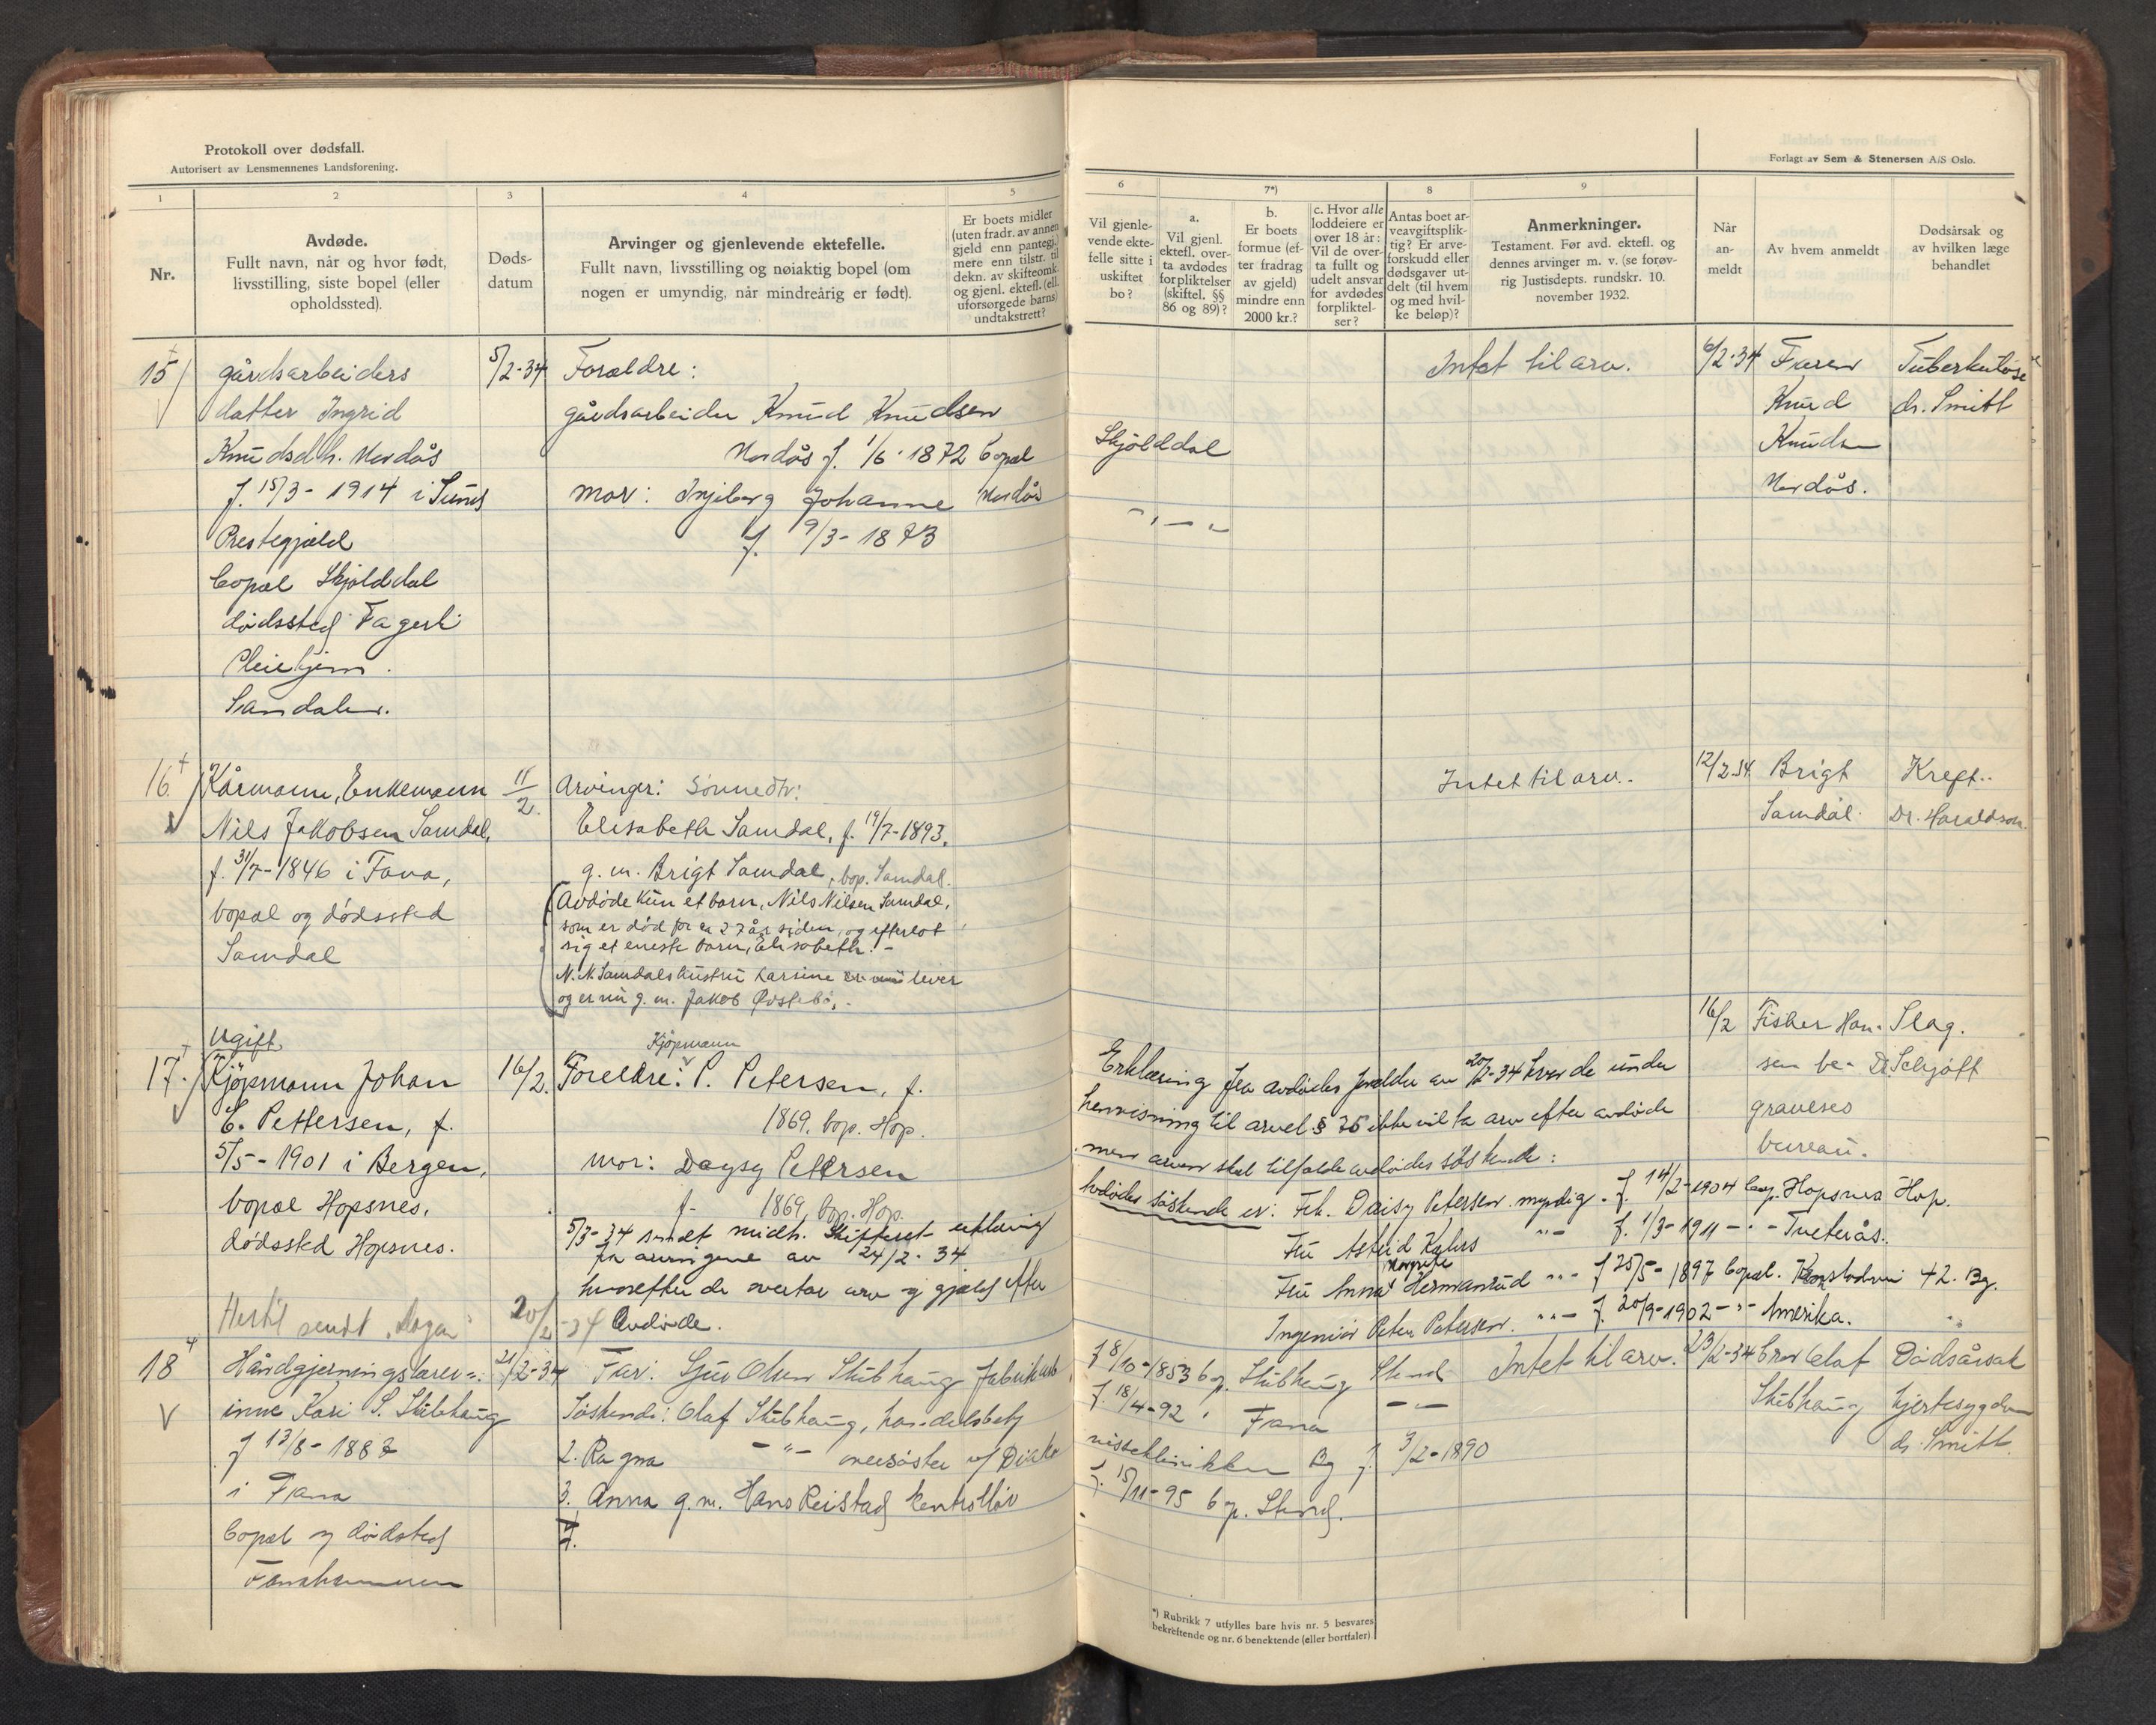 Protokoll over dødsfall.
Autorisert av Lensmennenes Landsforening.
1
2
3
4
5
Nr.
Avdøde.
Fullt navn, når og hvor født,
livsstilling, siste bopel (eller
opholdssted).
Døds-
datum
Arvinger og gjenlevende ektefelle.
Fullt navn, livsstilling og nøiaktig bopel (om
nogen er umyndig, når mindreårig er født).
Er boets midler
(uten fradr. av annen
gjeld enn pantegj.)
mere enn tilstr. til
dekn. av skifteomk.
og gjenl. ektefl. (ell.
uforsørgede barns)
undtakstrett?
15
gårdsarbeiders
datter Ingrid
Knudsdtr. Nordås
f. 15/3 - 1914 i Sund
Prestegjæld
bopæl Skjolddal
dødssted Fagerli
Pleiehjem.
Sandalen.
5/2-34
Forældre:
gårdsarbeider Knud Knudsen
Nordås f. 1/6 1872 bopæl
mor: Ingeborg Johanne Nordås
f. 9/3 - 1873
16
Kårmann, Enkemann
Nils Jakobsen Samdal,
f. 31/7-1846 i Fana,
bopæl og dødssted
Samdal
11/2
Arvinger: Sønnedtr:
Elisabeth Samdal, f. 19/7-1893.
g. m. Brigt Samdal, bop. Samdal.
(Avdøde kun et barn, Nils Nilsen Samdal,
som er død for ca 27 år siden, og efterlot
sig et eneste barn, Elisabeth. -
N. N. Samdals hustru Larsine lever
og er nu g. m. Jakob Østebø. -
Ugift
17.
Kjöpmann Johan
C. Pettersen, f.
5/5 - 1901 i Bergen,
bopæl Hopsnes,
dødssted Hopsnes.
16/2.
Kjöpmann
Foreldre: P. Petersen, f.
1869, bop. Hop.
mor: Daysy Petersen
f. 1869, bop. Hop.
5/3-34 sendt midh. Skifteret erklæring
fra arvingene av 24/2-34
hvorefter de overtar arv og gjæld efter
avdøde.
Hertil sendt "Dagen" 20/2-34
18
Håndgjerningslærer-
inne Kari S. Stibhaug
f 13/8 - 1887
i Fana
bopæl og dødsted
Fanahammeren
21/2-34
Far: Sjur Olsen Stibhaug fabrikarb.
Søskende: Olaf Stibhaug, handelsbetj
2. Ragna - " - oversøster v/ Diako
3. Anna g. m. Hans Reistad kontrollør
4.
Forlagt av Sem & Stenersen A/S Oslo.
6
7*)
8
9
Vil gjenle-
vende ekte-
felle sitte i
uskiftet
bo?
a.
Vil gjenl.
ektefl. over-
ta avdødes
forpliktelser
(skiftel. §§
86 og 89)?
b.
Er boets
formue (ef-
ter fradrag
av gjeld)
mindre enn
2000 kr.?
c. Hvor alle
loddeiere er
over 18 år:
Vil de over-
ta fullt og
udelt ansvar
for avdødes
forpliktel-
ser?
Antas boet ar-
veavgiftsplik-
tig? Er arve-
forskudd eller
dødsgaver ut-
delt (til hvem
og med hvil-
ke beløp)?
Anmerkninger.
Testament. Før avd. ektefl. og
dennes arvinger m. v. (se forøv-
rig Justisdepts. rundskr. 10.
november 1932.
Når
an-
meldt
Av hvem anmeldt
Dødsårsak og
av hvilken læge
behandlet
Skjolddal
- " -
Intet til arv.
6/2-34
Faren
Knud
Knudsen
Nordås.
Tuberkulose
dr. Smitt
Intet til arv.
12/2 34.
Brigt
Samdal.
Kreft.
Dr. Haraldson.
16/2
Fisher Han-
sen be-
graveses
bureau.
Slag.
Dr Schjøtt
Erklæring fra avdødes forældre av 20/2-34 hvor de under
henvisning til arvel § 36 ikke vil ta arv efter avdøde
men arven skal tilfalde avdødes søskende:
Avdødes søskende er: Frk. Daisy Petersen myndig. f. 14/2-1904 bop. Hopsnes Hop.
Fru Astrid Kahrs " - f. 1/3-1911 - " - Tveterås.
Margrethe
Fru Anna Hermanrud " - f 25/5-1897 bopæl. 42. Bg.
Ingeniør Peter Petersen. " - f. 20/9-1902 - " - Amerika.
f 8/10-1853 bop. Stibhaug Stend
Intet til arv.
23/2-34
bror Olaf
Stibhaug
Dødsårsak
hjertesygdom
dr. Smitt.
f. 18/4-92 " Fana - " -
nisseklinikken Bg f. 3/2-1890
f. 15/11-95 bop. Stend.
*) Rubrikk 7 utfylles bare hvis nr. 5 besvares
bekreftende og nr. 6 benektende (eller bortfaler).